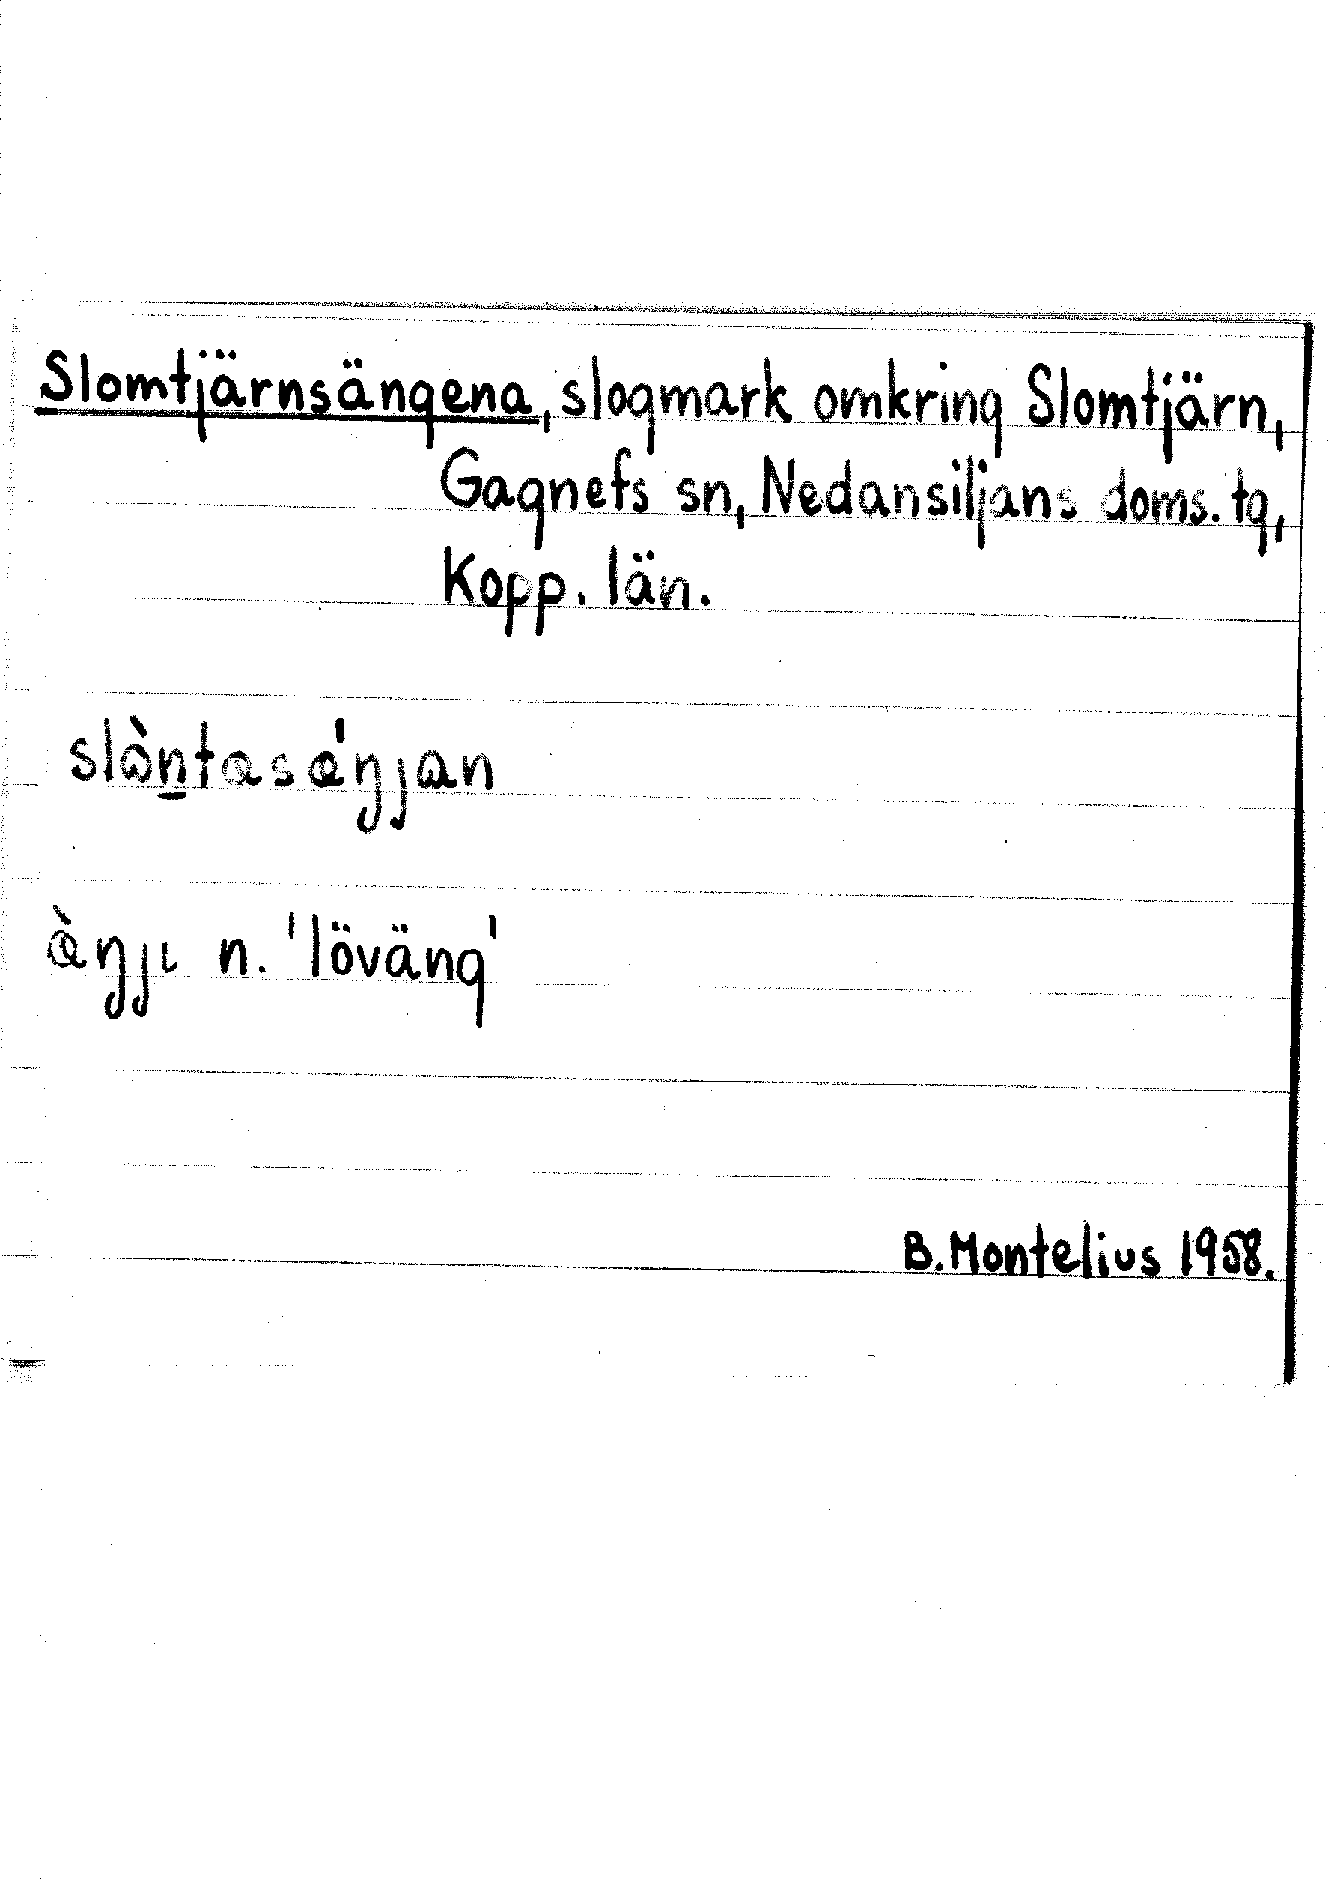 Slomtjärnsängena, slogmark omkring Slomtjärn,
Gagnefs sn, Nedansiljans doms. tg,
Kopp. län.
slàn̲tasáŋjan
àŋjɩ n. 'löväng'
B. Montelius 1958.